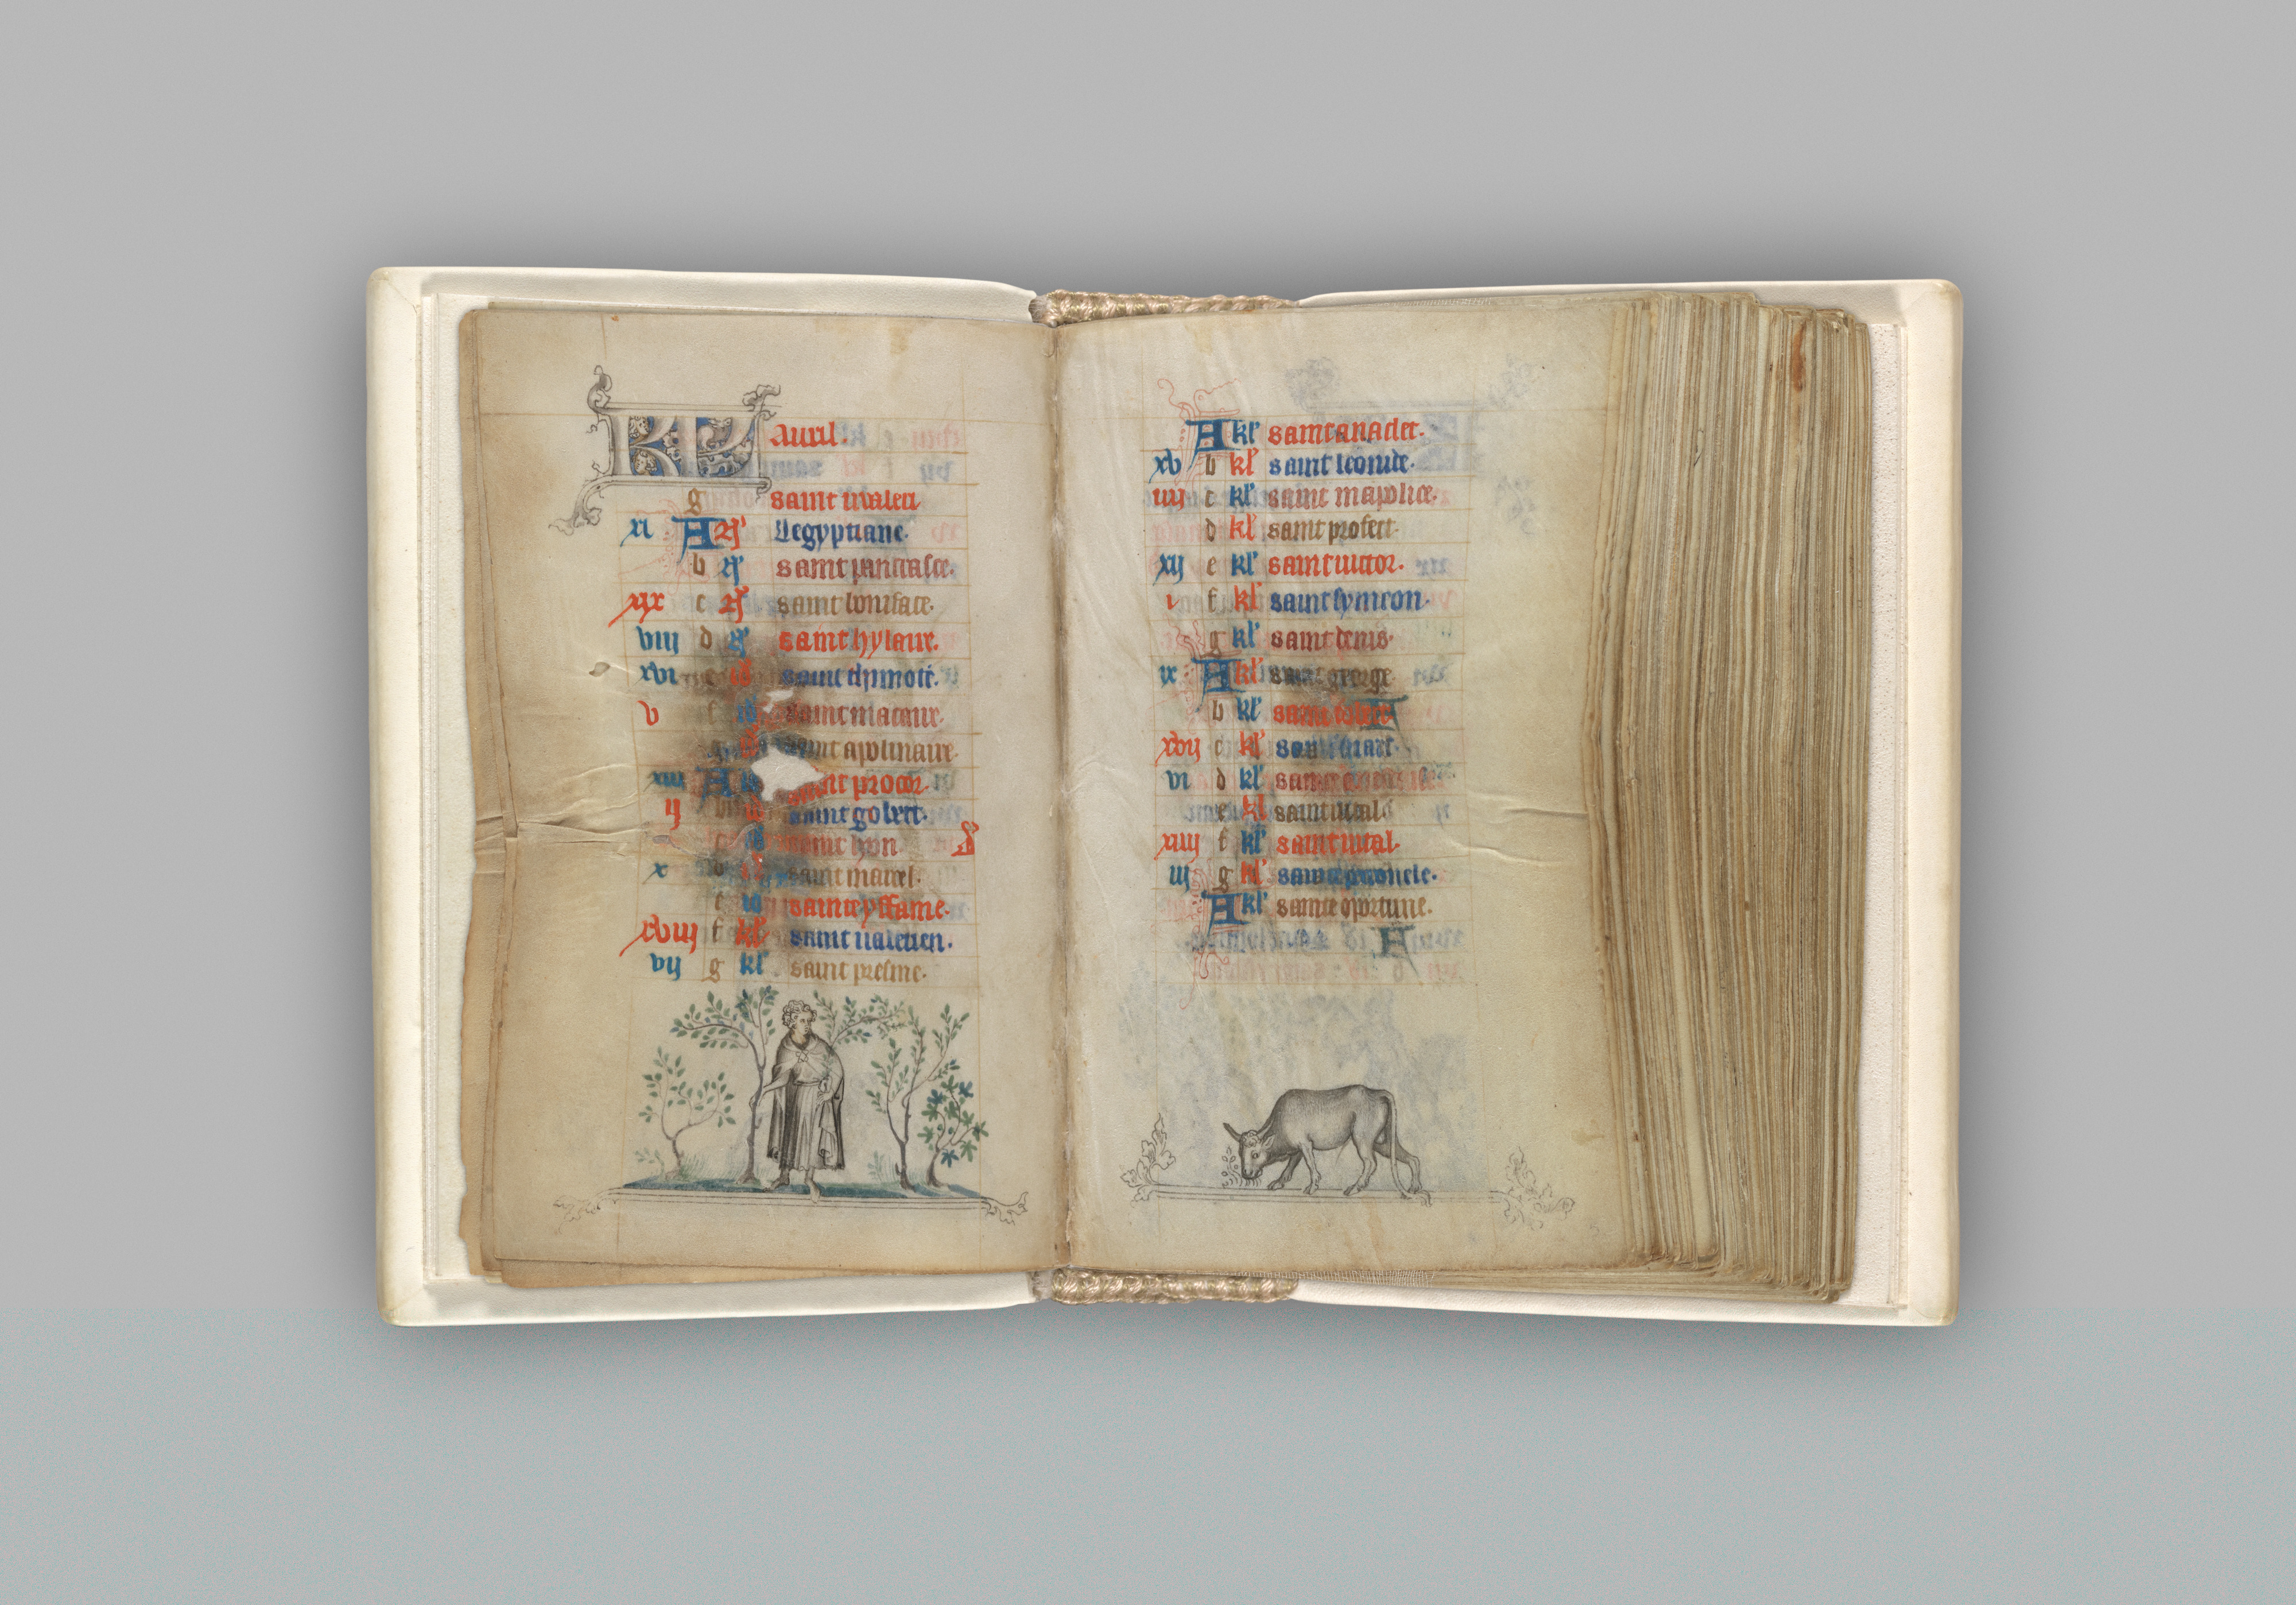 KL Auril.
g saint ualeri
xi A N' Legyptiane.
b N' saint pancrasce.
xix c N' saint boniface.
viij d N' saint hylaire.
xvi id' saint thimote.
v f id' saint macaire.
g saint apolinaire.
xiij A id' saint procor.
ij b id' saint gobert.
c id' saint
x d id' saint marcel.
e id' sainte yffame.
xviij f kl' saint ualerien.
vij g kl' saint presme.
A kl' saint anaclet.
xv b kl' saint leonide.
iiij c kl' saint mapolice.
d kl' saint profect.
xij e kl' saint uictor.
i f kl' saint symeon.
g kl' saint denis.
ix A kl' saint george
b kl' saint
xvij c kl' saint marc.
vi d kl' saint
e kl saint uital
xiiij f kl' saint uital.
iij g kl' sainte
A kl' sainte oportune.